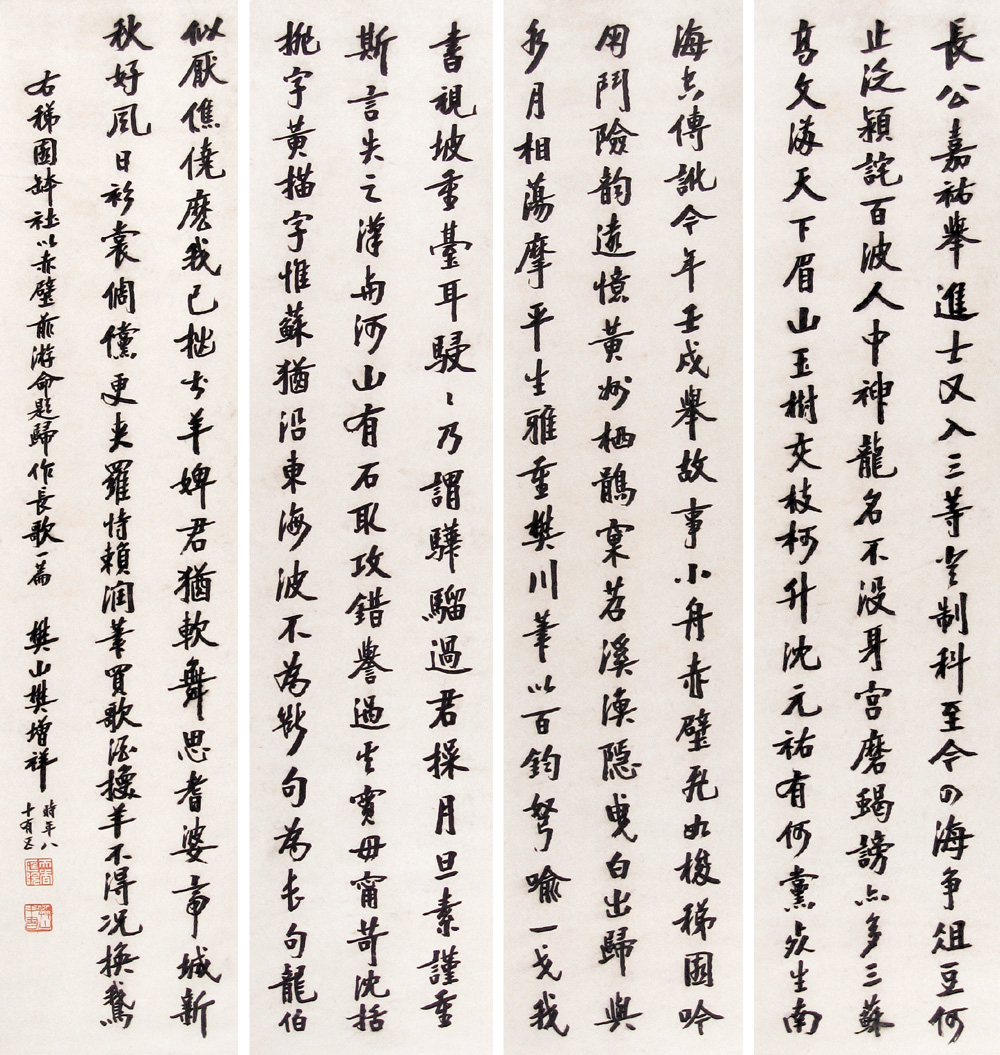 長公嘉祐舉進士又入三等登制科至今四海爭俎豆何
止泛潁詫百波人中神龍名不沒身宮磨蝎謗亦多三蘇
高文滿天下眉山玉樹交枝柯升沈元祐有何黨生南
海真傳訛今年壬戌舉故事小舟赤壁飛如梭稊園吟
用鬥險韵遠憶黃州栖鶻窠苕溪漁隱曳白出歸與
水月相蕩摩平生雅重樊川筆以百鈞弩喻一戈我
書視坡重臺耳駸々乃謂驊騮過君操月旦素謹重
斯言失之漢與河山有石取攻錯譽過失實毋甯苛沈括
排字黃描字惟蘇猶沿東海波不為斷句為長句龍伯
似厭僬僥麼我已拙書羊婢君猶軟舞思耆婆帝城新
秋好風日衫裳倜儻更夾羅恃賴潤筆買歌酒擾羊不得况換鵝
右稊園缽社以赤壁前游命題歸作長歌一篇 樊山樊增祥
時年八
十有五